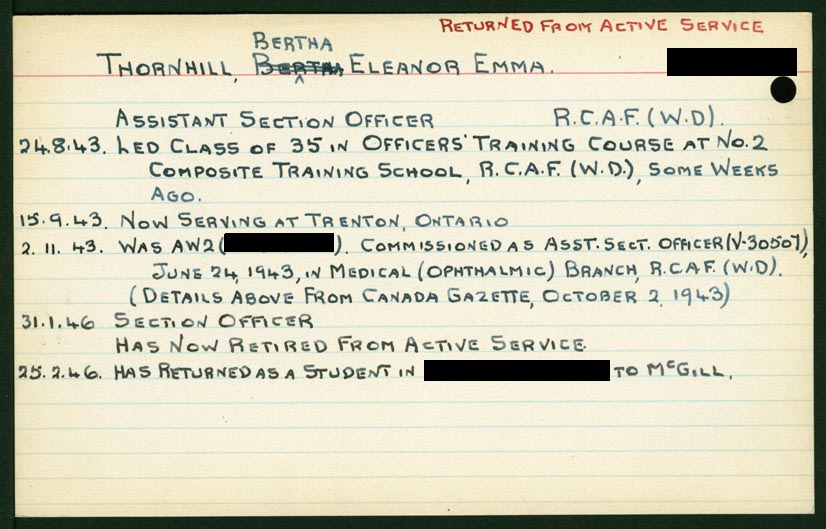 RETURNED FROM ACTIVE SERVICE
BERTHA
THORNHILL, BERTHA ELEANOR EMMA.
ASSISTANT SECTION OFFICER R.C.A.F. (W.D).
24.8.43. LED CLASS OF 35 IN OFFICERS' TRAINING COURSE AT NO.2
COMPOSITE TRAINING SCHOOL, R.C.A.F. (W.D.), SOME WEEKS
AGO.
15.9.43. NOW SERVING AT TRENTON, ONTARIO
2.11.43. WAS AW2 ( ). COMMISSIONED AS ASST. SECT. OFFICER (V-30507),
JUNE 24, 1943, IN MEDICAL (OPHTHALMIC) BRANCH, R.C.A.F. (W.D).
(DETAILS ABOVE FROM CANADA GAZETTE, OCTOBER 2, 1943)
31.1.46 SECTION OFFICER
HAS NOW RETIRED FROM ACTIVE SERVICE
25.2.46. HAS RETURNED AS A STUDENT IN TO MCGILL.